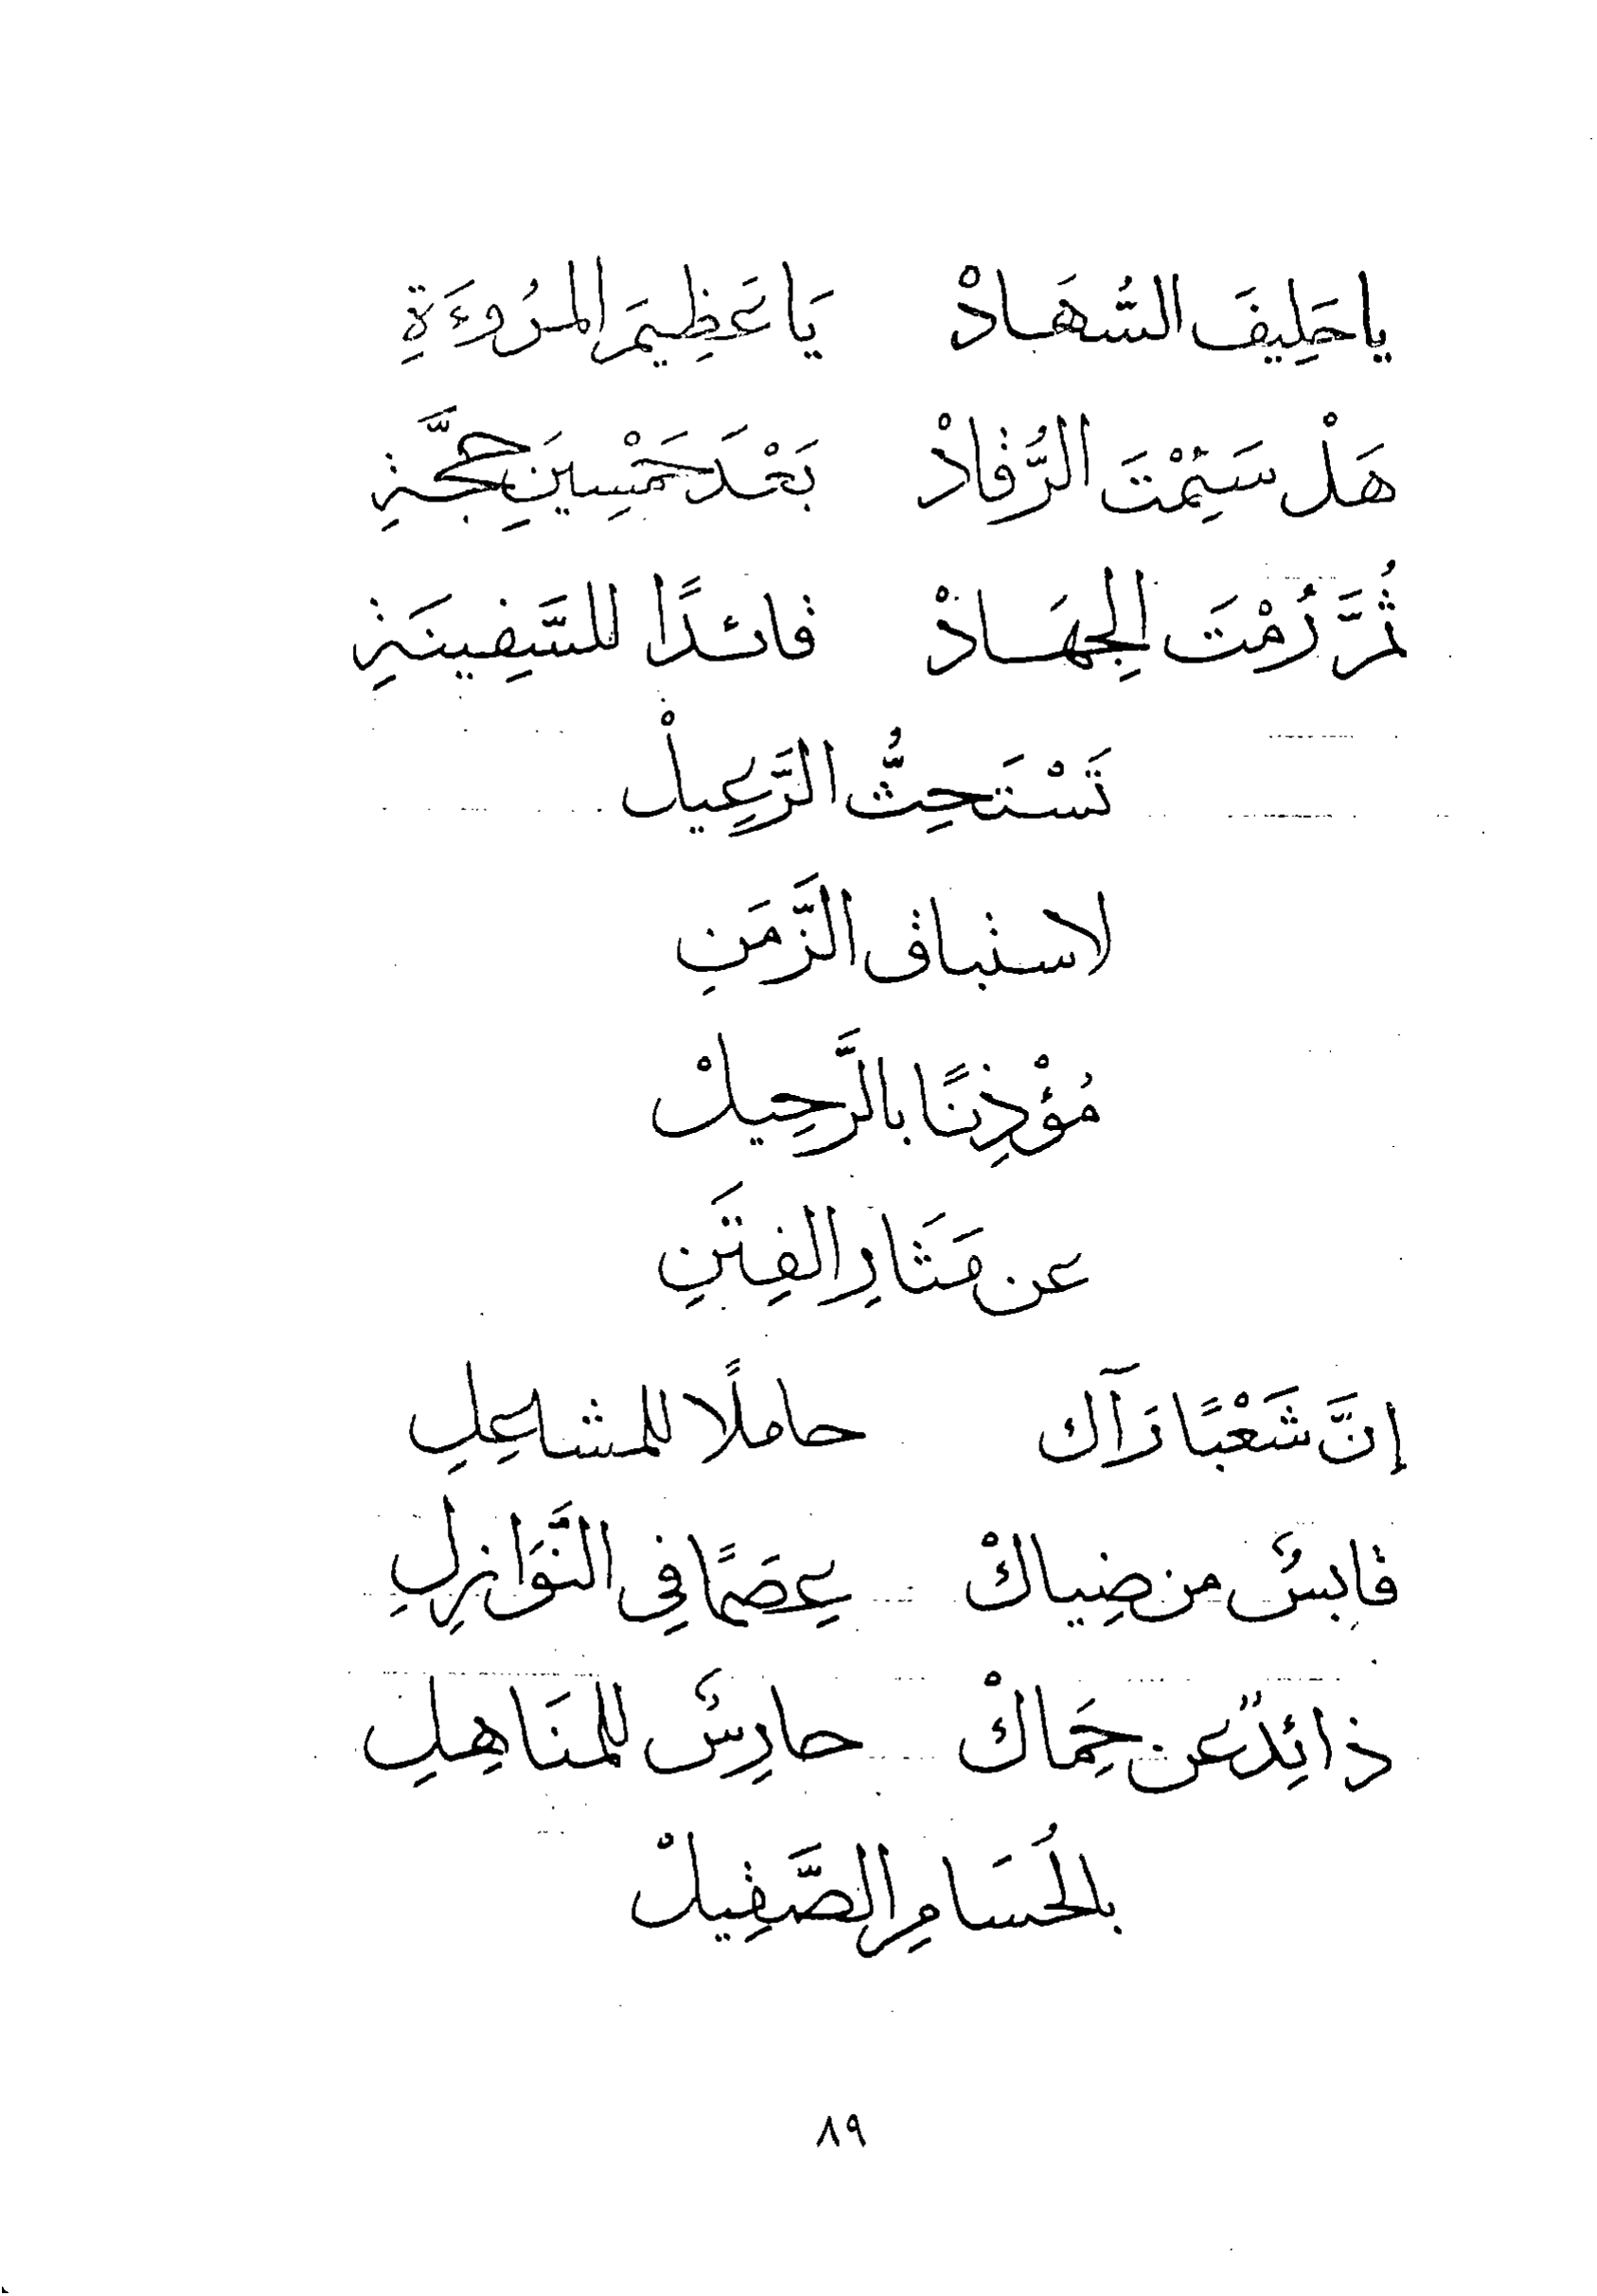 يا حَلِيفَ السُّهَادْ يَا عَظِيمَ المرُوءَةِ
هَلْ سَئِمْتَ الرُّقَادْ بَعْدَ خَمْسِينَ حِجَّةِ
ثُمَّ رُمْتَ الجِهَادْ قائدًا للسَّفِينَةِ
تَسْتَحِثُّ الرَّعِيلْ
لاستباق الزَّمَنِ
مُؤْذِنًا بالرَّحِيلْ
عن مَثَارِ الفِتَنِ
إنَّ شَعْبًا رَآك حاملًا للمشاعِلِ
قابسٌ من ضِياكْ عِصَمًا فِي النَّوَازِلِ
ذائِدٌ عن حِمَاكْ حارِسٌ للمنَاهِلِ
بالحُسَامِ الصَّقِيلْ
٨٩